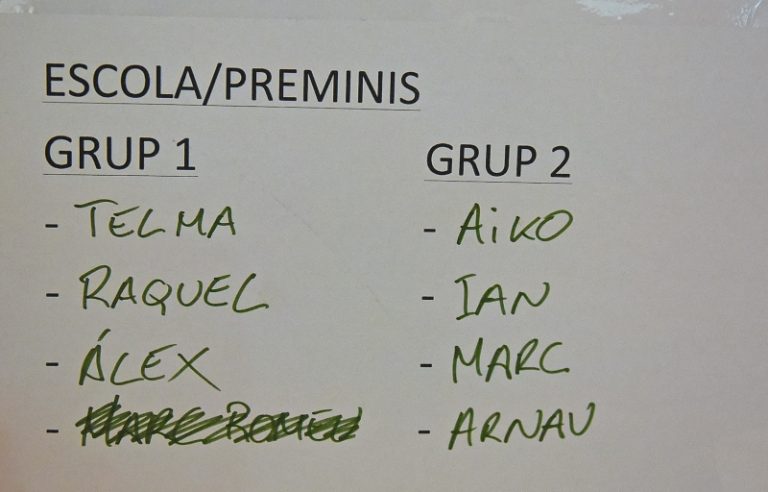 ESCOLA/PREMINIS
GRUP 1
- TELMA
- RAQUEL
- ÁLEX
-
GRUP 2
- AiKO
- IAN
- MARC
- ARNAU